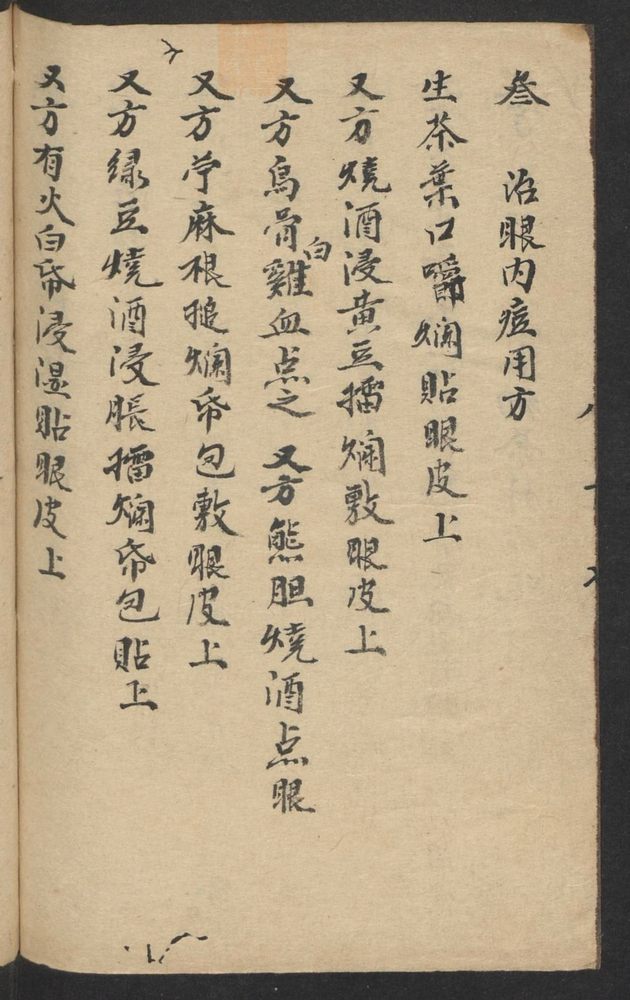 叁 治眼内痘用方
生茶葉口嚼爛貼眼皮上
又方燒酒浸黃豆擂爛敷眼皮上
又方烏骨白雞血点之 又方熊胆燒酒点眼
又方苧麻根搥爛帋包敷眼皮上
又方绿豆燒酒浸脹擂爛帋包貼上
又方有火白帋浸湿貼眼皮上